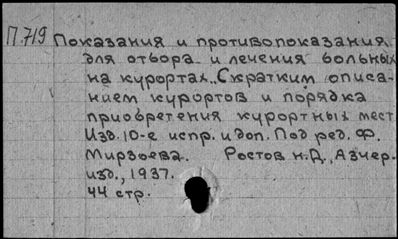 П.719 Показания и противопоказания
для отбора и лечения больных
на курортах. С кратким описа-
нием курортов и порядка
приобретения курортных мест.
Изд. 10-е испр. и доп. Под ред. Ф.
Мирзоева. Ростов н.Д., Азчер.
изд., 1937.
44 стр.